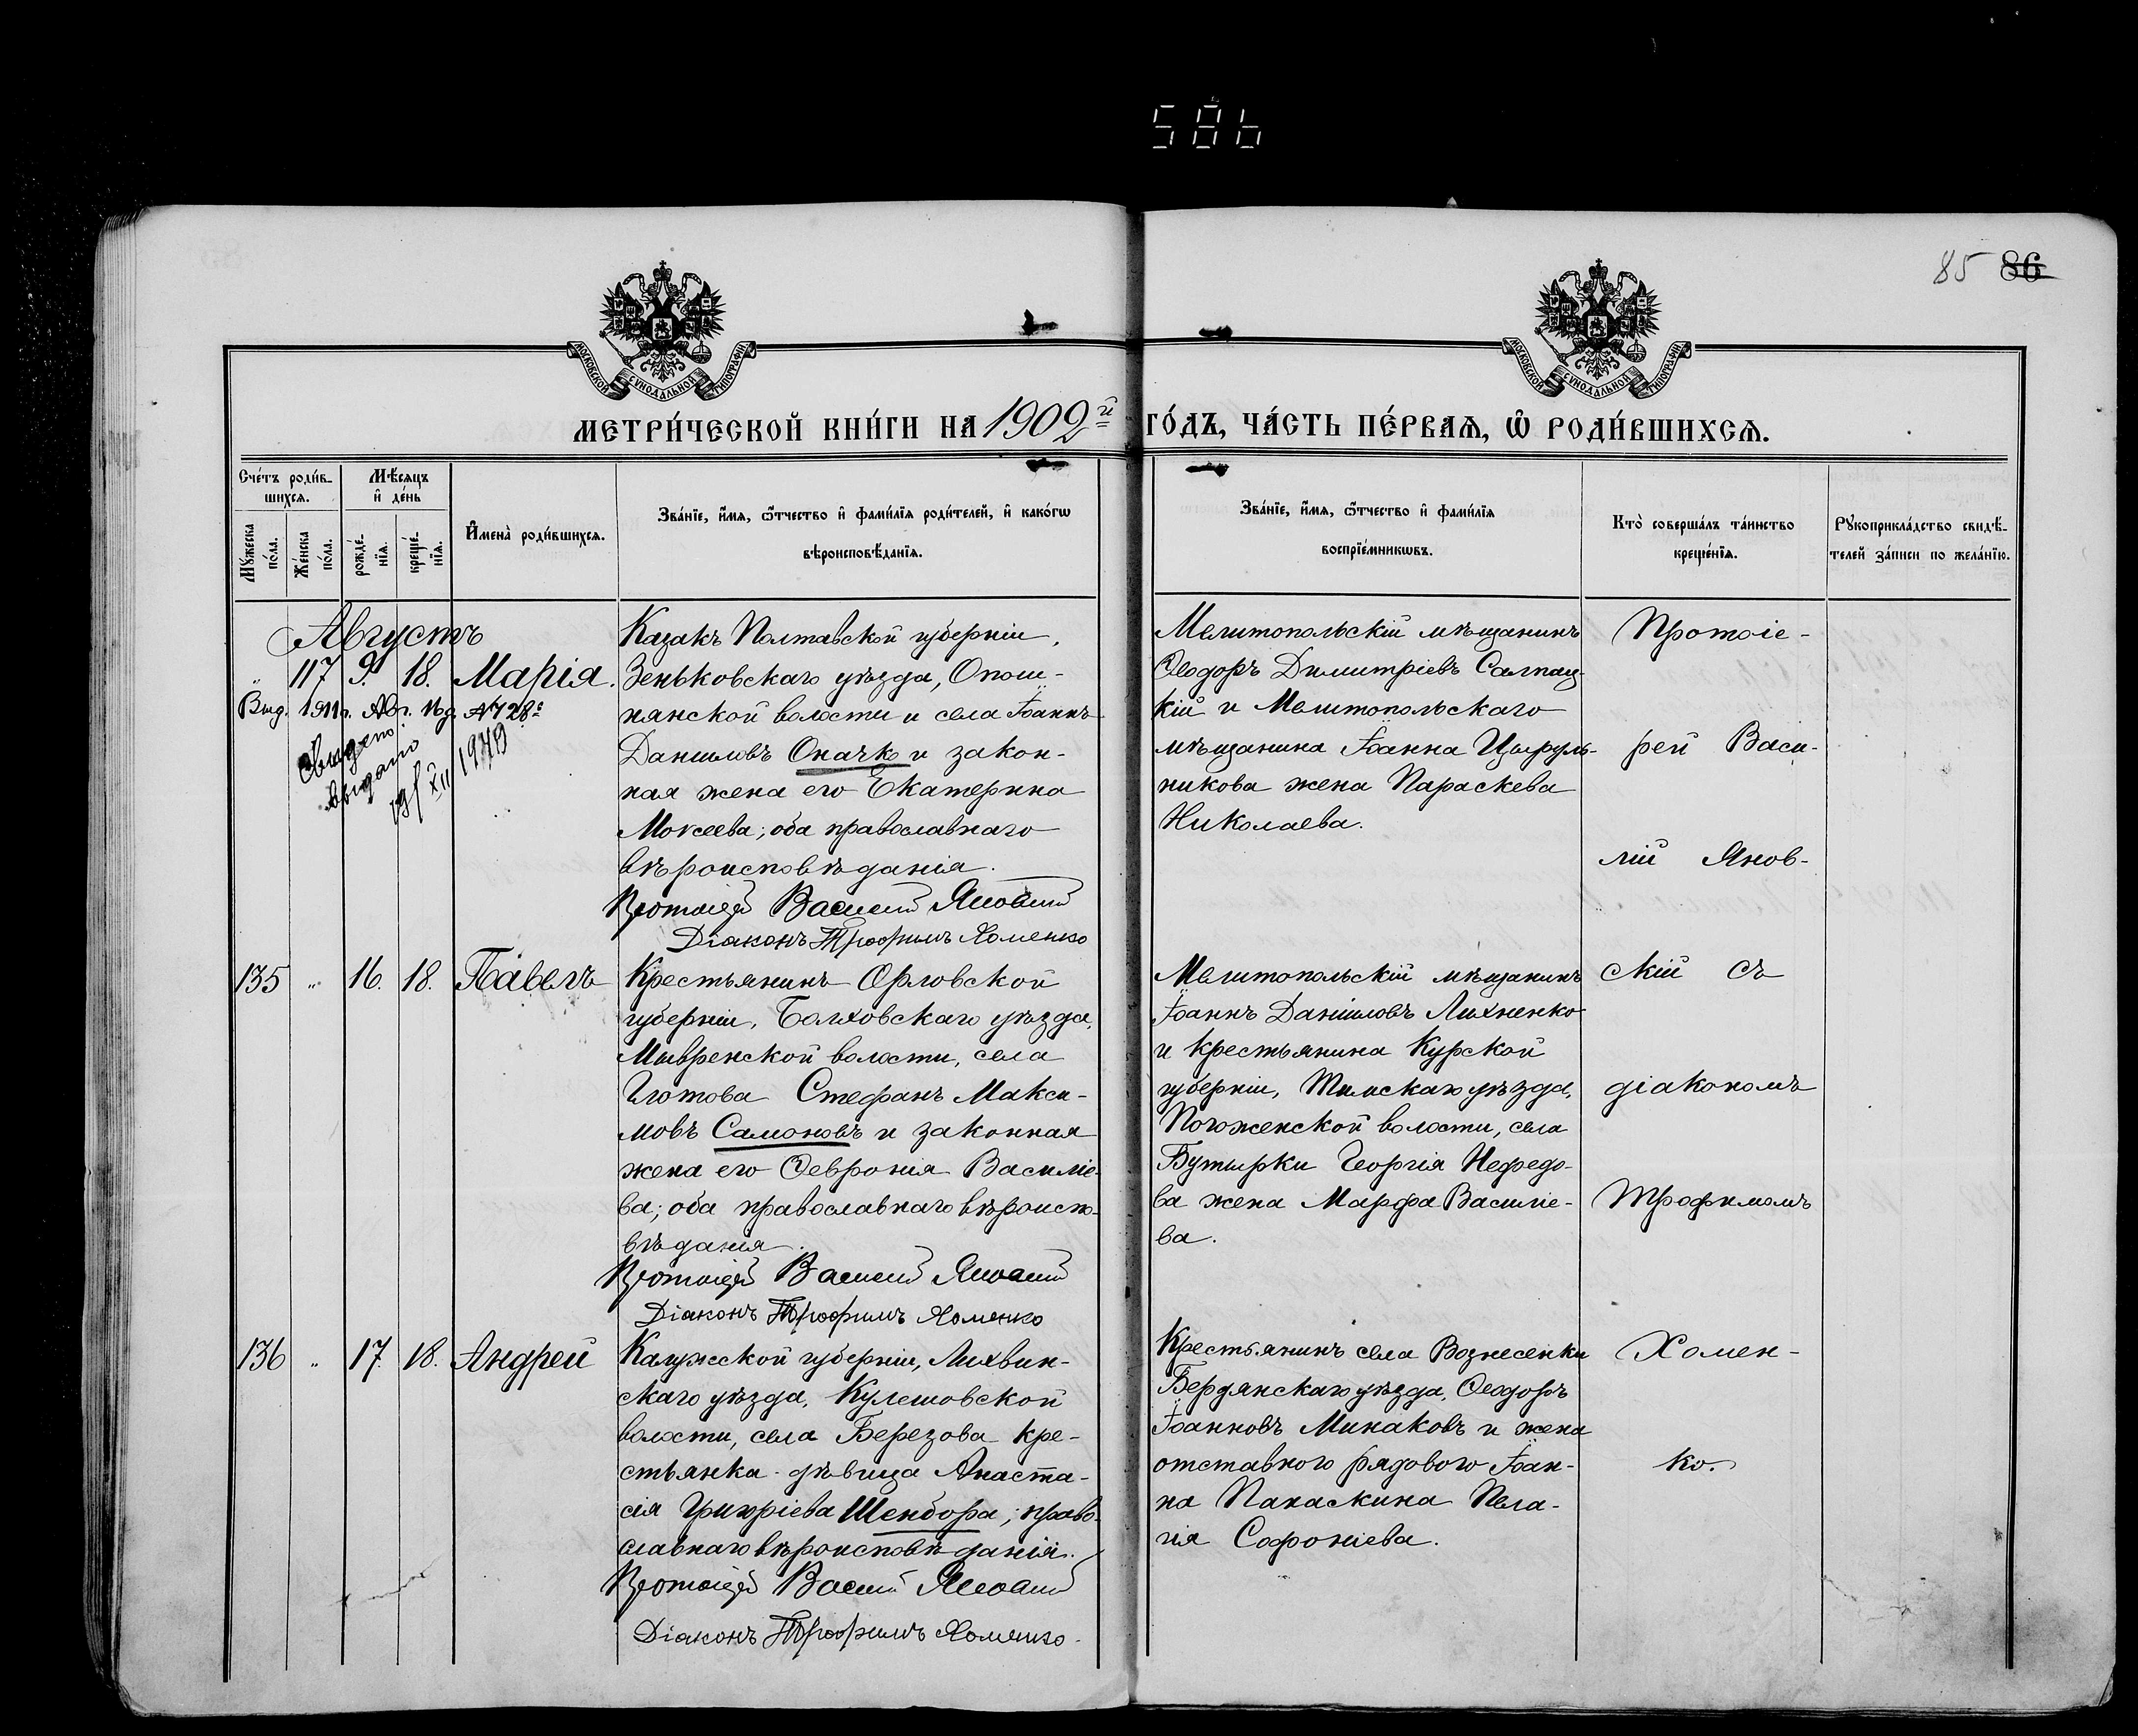 586
85 86
МОСКОВСКОЙ СѴНОДАЛЬНОЙ ТИПОГРАФІИ
МОСКОВСКОЙ СѴНОДАЛЬНОЙ ТИПОГРАФІИ
МЕТРИ́ЧЕСКОЙ КНИ́ГИ НА 1902й ГО́ДЪ, ЧА́СТЬ ПЕ́РВАЯ, Ѡ РОДИ́ВШИХСЯ.
Сче́тъ роди́в-
шихся.
Мѣ́сяцъ
и де́нь
Мꙋ́жеска
по́ла.
Же́нска
по́ла.
рожде́-
нїя.
креще́-
нїя.
И҆мена̀ роди́вшихся.
Зва́нїе, и҆́мя, ѻ҆́тчество и҆ фами́лїя роди́телей, и҆ како́гѡ
вѣроисповѣ́данїя.
Зва́нїе, и҆́мя, ѻ҆́тчество и҆ фами́лїя
воспрїе́мникѡвъ.
Кто̀ соверша́лъ та́инство
креще́нїя.
Рꙋкоприкла́дство свидѣ́-
телей за́писи по жела́нїю.
Августъ
" 117 9. 18. Марія.
Выд. 1911г. Авг. 16д. №728.
Свидет.
выдано
19/XII 1949
Казакъ Полтавской губерніи,
Зеньковскаго уѣзда, Опош-
нянской волости и села Іоаннъ
Даниловъ Оначко и закон-
ная жена его Екатерина
Моѵсеева; оба православнаго
вѣроисповѣданія.
Протоіерей Василій Яновскій
Діаконъ Трофимъ Хоменко
Мелитопольскій мѣщанинъ
Ѳеодоръ Димитріевъ
кій и Мелитопольскаго
мѣщанина Іоанна Цыруль-
никова жена Параскева
Николаева.
Протоіе-
рей Васи-
лій Янов-
скій съ
діакономъ
Трофимомъ
Хомен-
ко.
135 " 16. 18. Павелъ
Крестьянинъ Орловской
губерніи, Болховскаго уѣзда,
волости, села
Глотова Стефанъ Макси-
мовъ Самоновъ и законная
жена его Ѳеврония Василіе-
ва; оба православнаго вѣроиспо-
вѣданія.
Протоіерей Василій Яновскій
Діаконъ Трофимъ Хоменко
Мелитопольскій мѣщанинъ
Іоаннъ Даніиловъ Лихненко
и крестьянина Курской
губерніи, Тимскаго уѣзда,
Погоженской волости, села
Бутырки Георгія Нефедо-
ва жена Марфа Василіе-
ва.
136 " 17. 18. Андрей
Калужской губерніи, Лихвин-
скаго уѣзда, Кулешовской
волости, села Березова кре-
стьянка девица Анаста-
сія Григоріева Шендора; право-
славнаго вѣроисповѣданія.
Протоіерей Василій Яновскій
Діаконъ Трофимъ Хоменко.
Крестьянинъ села Вознесенки
Бердянскаго уѣзда, Ѳеодоръ
Іоанновъ Минаковъ и жена
отставного рядового Іоан-
на Панаскина Пела-
гія Софоніева.